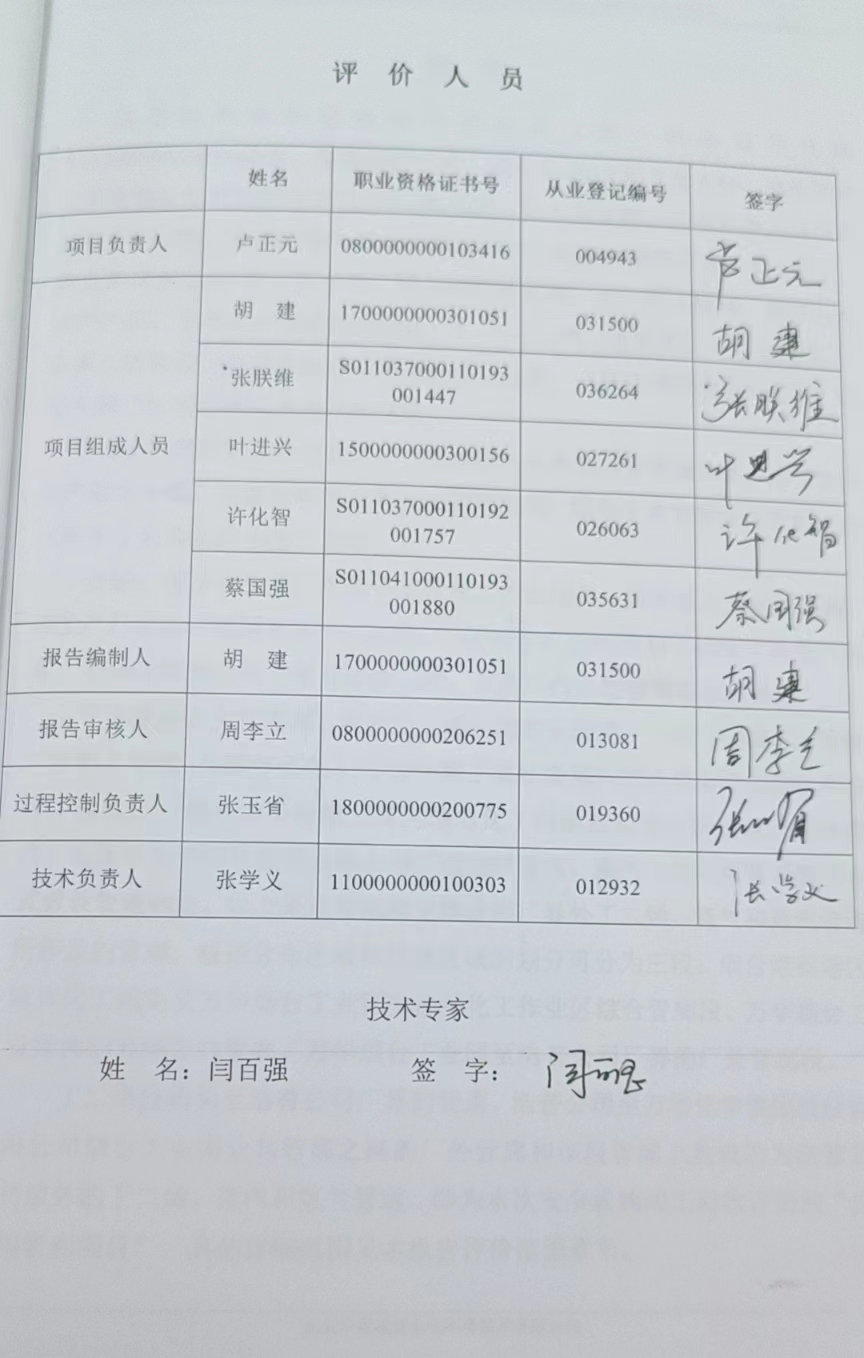 评 价 人 员
姓名 职业资格证书号 从业登记编号 签字
项目负责人 卢正元 0800000000103416 004943 卢正元
项目组成人员
胡 建 1700000000301051 031500 胡建
张朕维 S011037000110193001447 036264 张朕维
叶进兴 1500000000300156 027261 叶进兴
许化智 S011037000110192001757 026063 许化智
蔡国强 S011041000110193001880 035631 蔡国强
报告编制人 胡 建 1700000000301051 031500 胡建
报告审核人 周李立 0800000000206251 013081 周李立
过程控制负责人 张玉省 1800000000200775 019360 张玉省
技术负责人 张学义 1100000000100303 012932 张学义
技术专家
姓 名：闫百强 签 字：闫百强